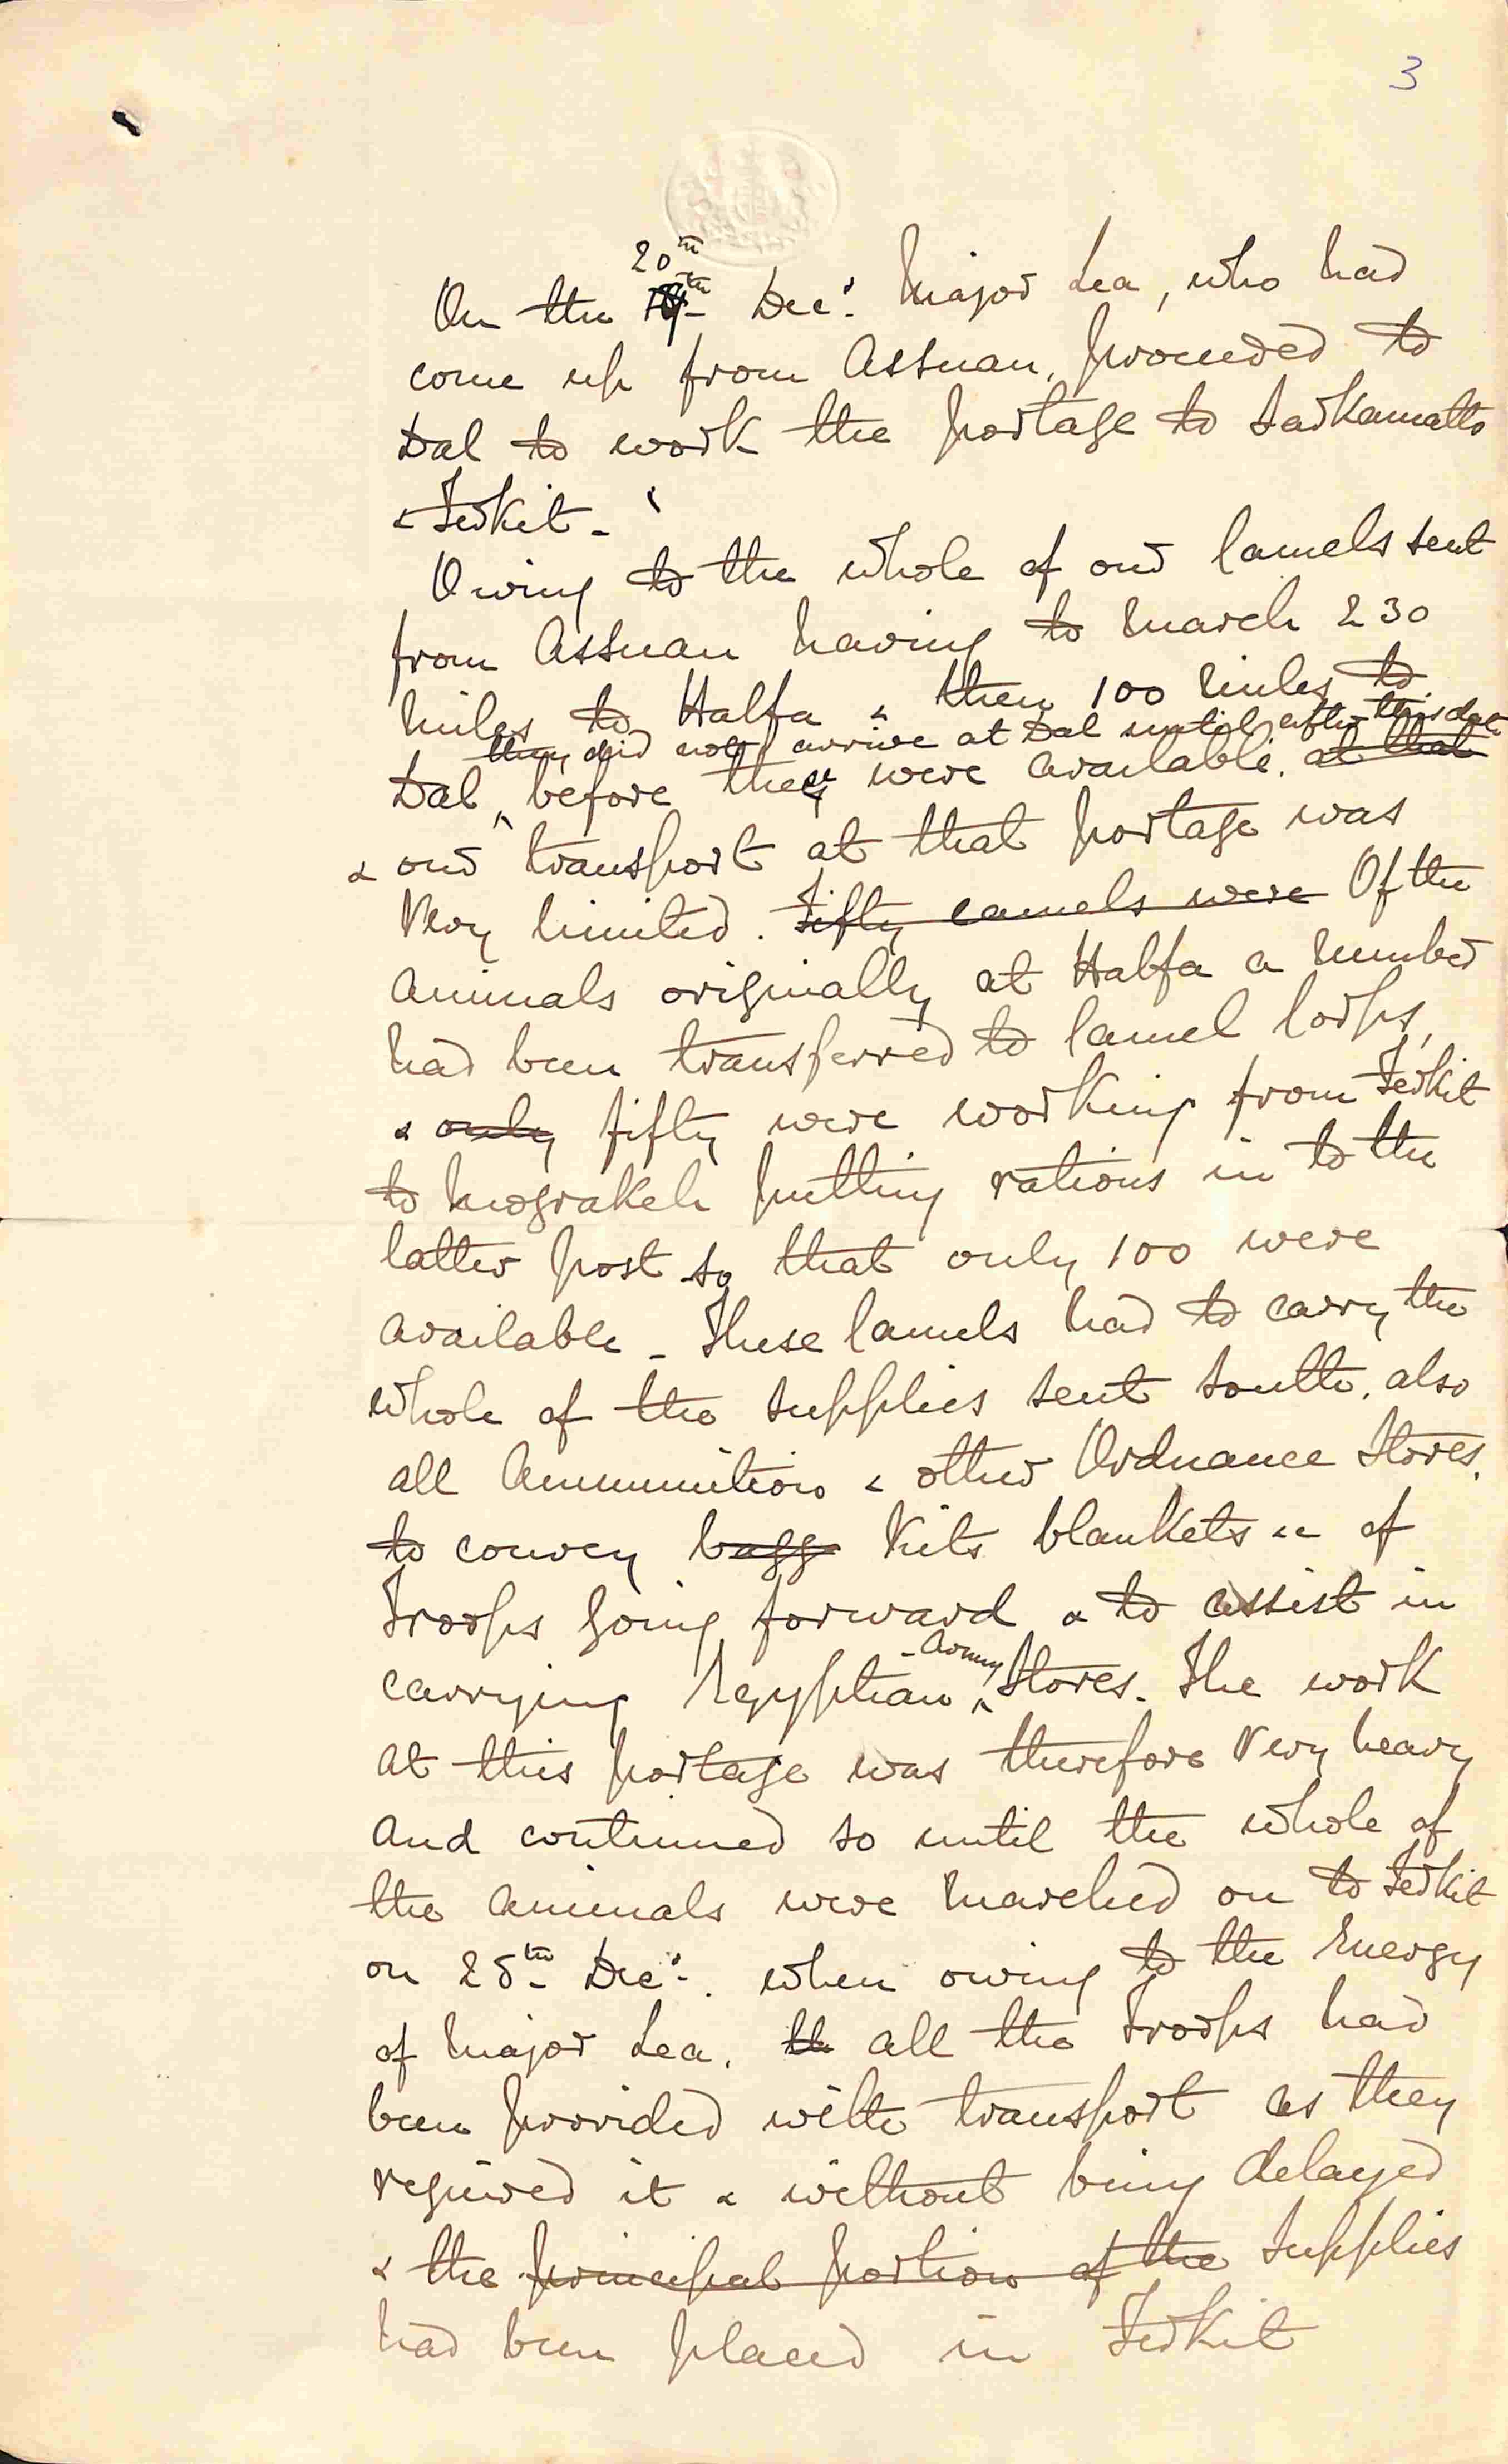 3
On the ~~19th~~ 20th Decr. Major Lea, who had
come up from Assuan, proceeded to
Dal to work the portage to Sarkamatto
& Ferkit -
Owing to the whole of our Camels sent
from Assuan having to march 230
miles to Halfa & then 100 miles to
they did not arrive at Dal until after this date
Dal, before they were available. ~~at that~~
& our transport at that portage was
Very limited. ~~Fifty camels were~~ Of the
Animals originally at Halfa a number
had been transferred to Camel Corps,
& ~~only~~ fifty were working from Ferkit
to Mograkeh putting rations in to the
latter post so that only 100 were
available - These Camels had to carry the
whole of the supplies sent South. also
all Ammunition & other Ordnance Stores.
to convey ~~bagg~~ Kits blankets &c of
Troops going forward & to assist in
carrying Egyptian Army Stores. The work
at this portage was therefore Very heavy
and continued so until the whole of
the animals were marched on to Ferkit
on 28th Decr. when owing to the Energy
of Major Lea. ~~th~~ all the Troops had
been provided with transport as they
required it & without being delayed
& the ~~principal portion of the~~ Supplies
had been placed in Ferkit